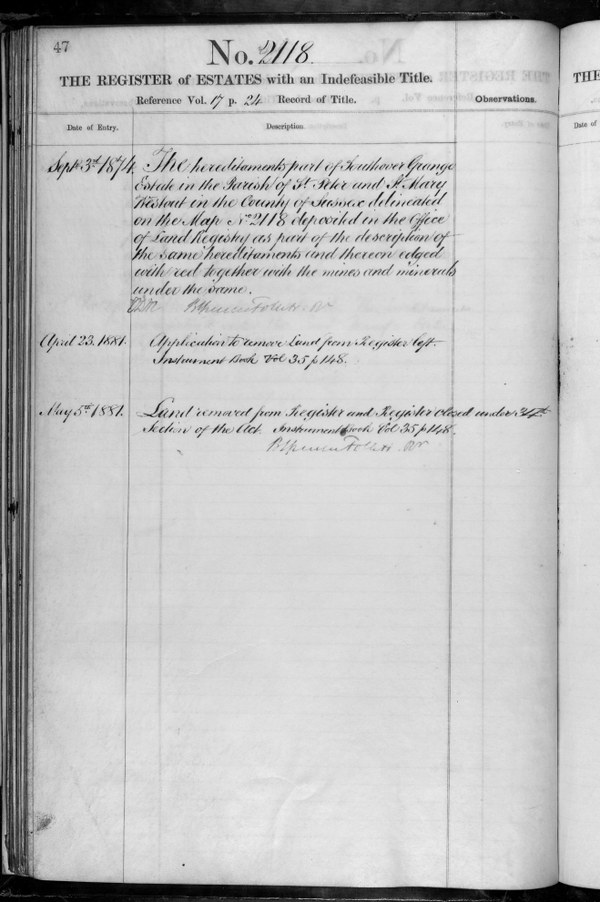 47
No. 2118.
THE REGISTER of ESTATES with an Indefeasible Title.
Reference Vol. 17 p. 24 Record of Title.
Observations.
Date of Entry.
Description.
Septr 3rd 1874.
The hereditaments part of Southover Grange
Estate in the Parish of St. Peter and St. Mary
Westout in the County of Sussex delineated
on the Map No. 2118 deposited in the Office
of Land Registry as part of the description of
the same hereditaments and thereon edged
with red together with the mines and minerals
under the same.
April 23. 1881.
Application to remove Land from Register left.
Instrument Book Vol 35 p 148.
May 5th 1881.
Land removed from Register and Register closed under 34th
Section of the Act. Instrument Book Vol 35 p 148.
THE
Date of